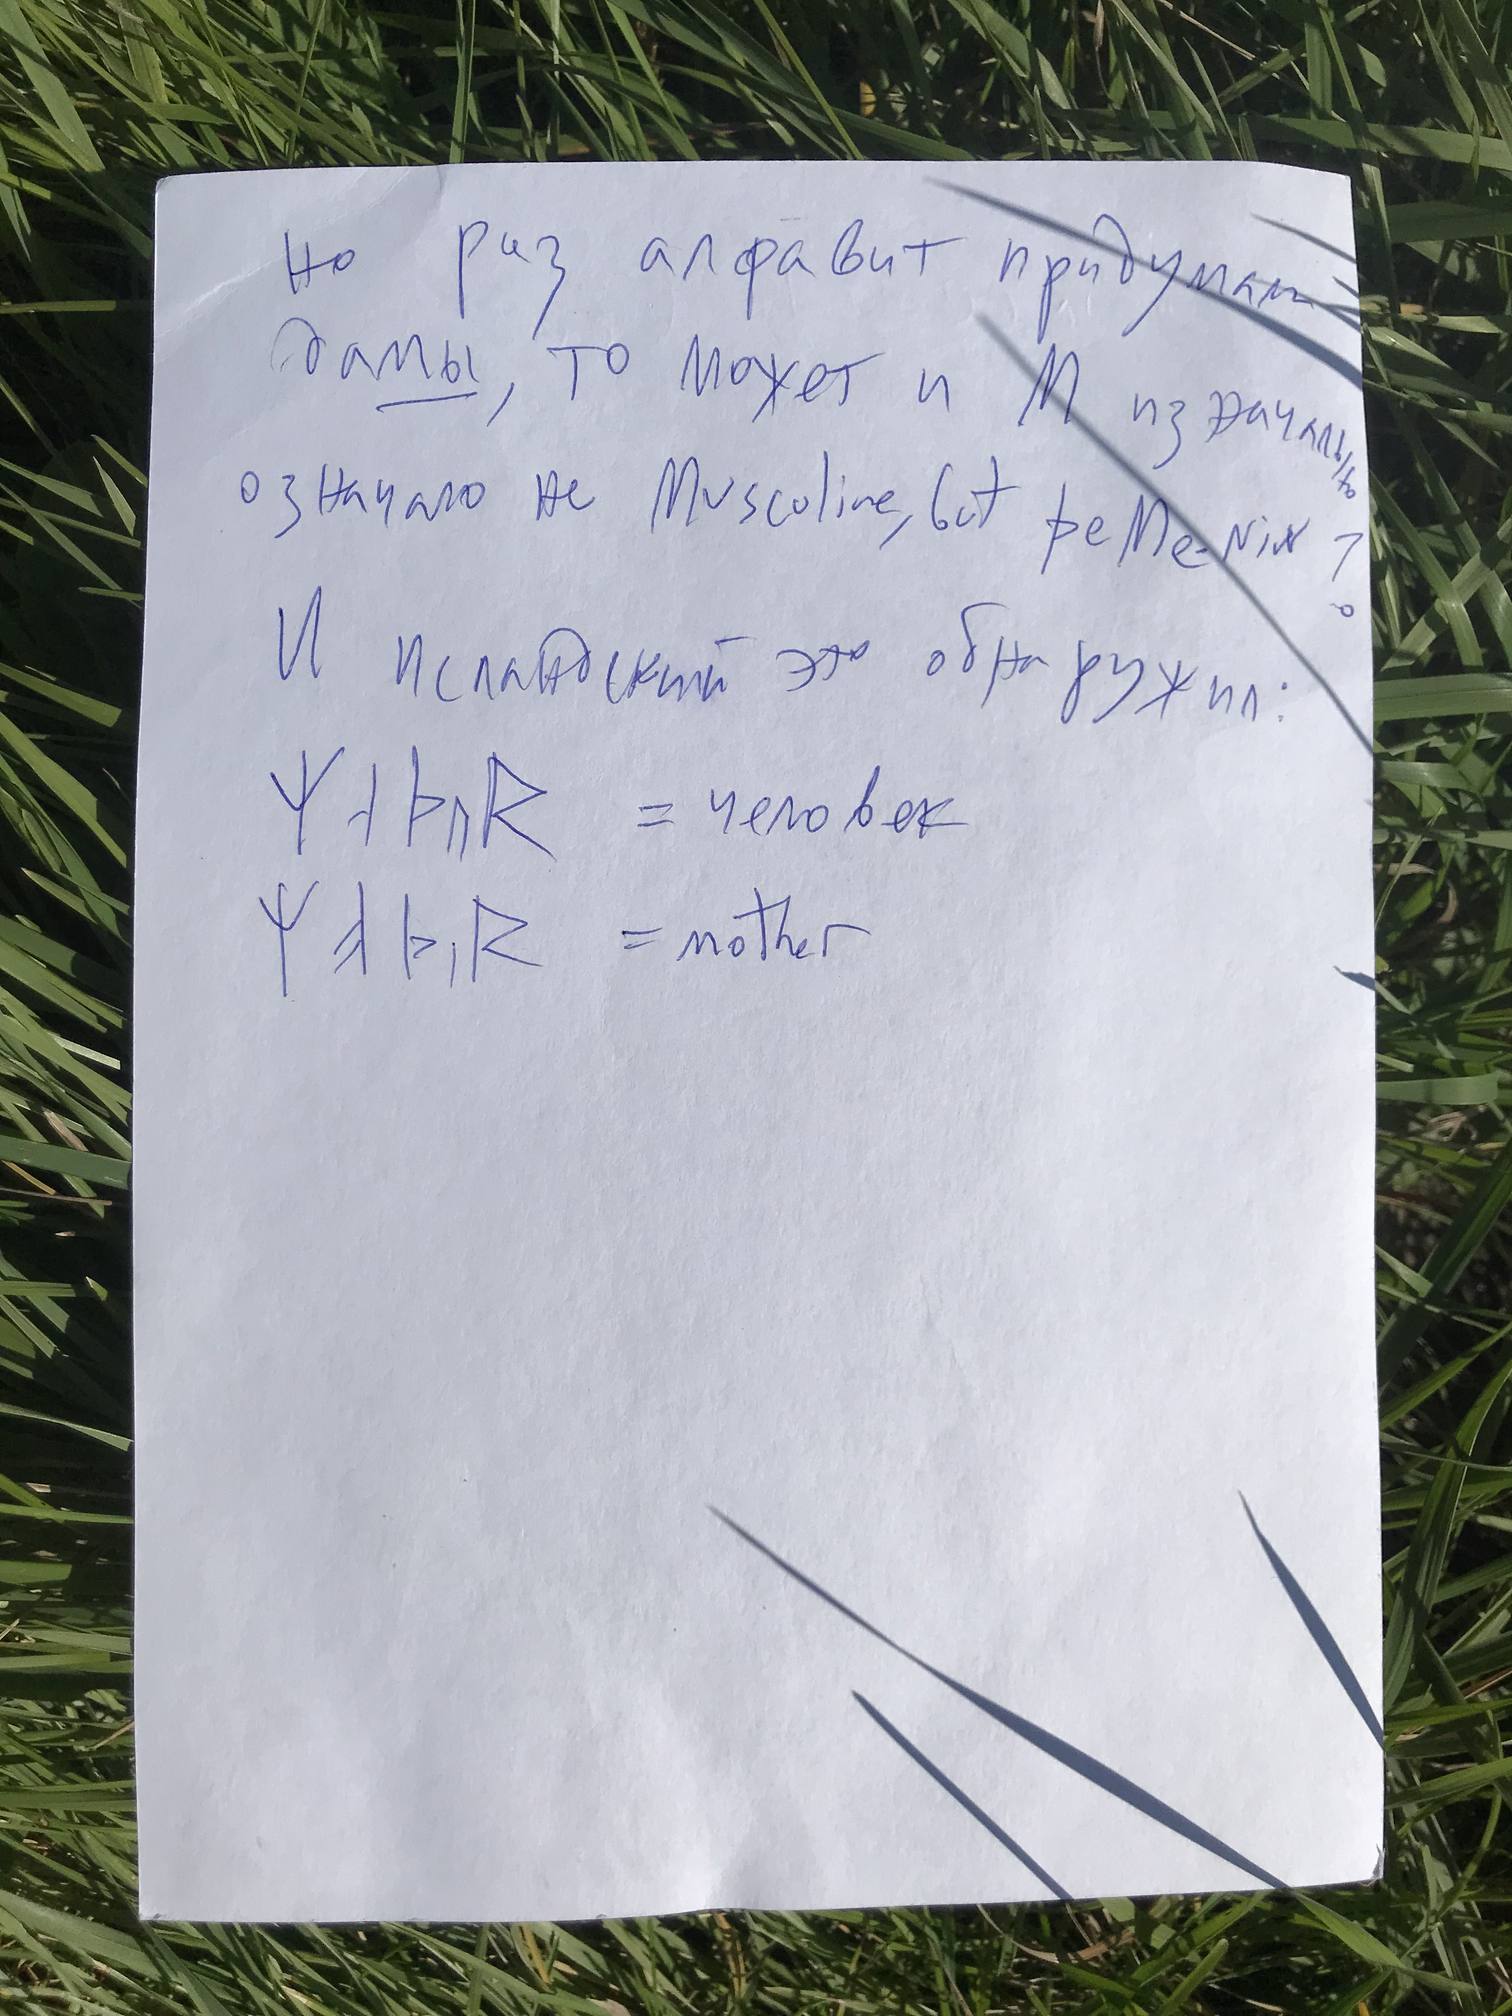 но раз алфавит придумали
дамы, то может и М изначально
означало не Musculine, but феMe-Nix?
И исландский это обнаружил:
ᛘᛆᚦᚢᚱ = человек
ᛘᚯᚦᛁᚱ = mother